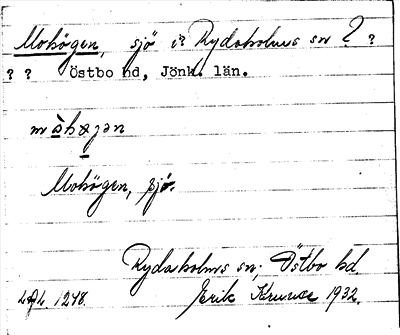 Mohögen, sjö i? Rydaholms sn ? ?
? ? Östbo hd, Jönk. län.
måhøgən
Mohögen, sjö.
Rydaholms sn; Östbo hd
1248. Erik Kruuse 1932.